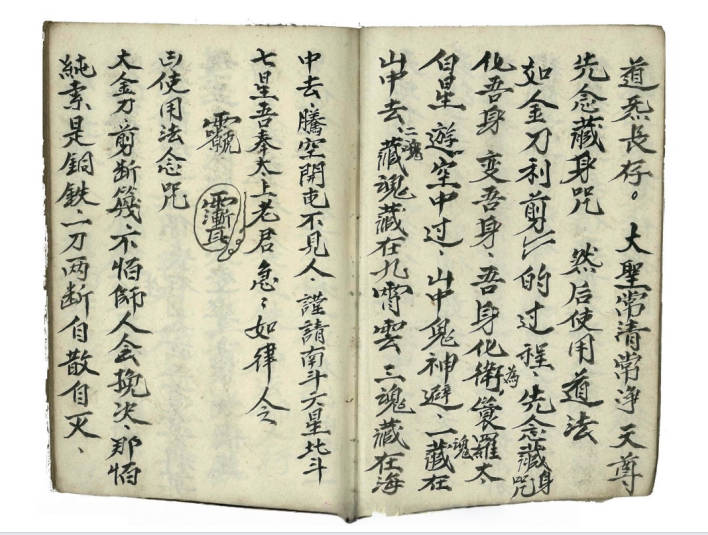 道炁長存。大聖常清常净天尊
先念藏身咒 然后使用道法
如金刀利剪的过程 先念藏身咒
化吾身 变吾身 吾身化為衛箕羅太
白星 遊空中过 山中鬼神避 一魂藏在
山中去 二魂藏在九霄雲 三魂藏在海
中去 騰空開屯不見人 謹請南斗六星北斗
七星吾奉太上老君急〻如律令
使用法念咒
大金刀 剪断篾 不怕師人会挽决 那怕
純素是銅鉄 一刀两断自散自灭